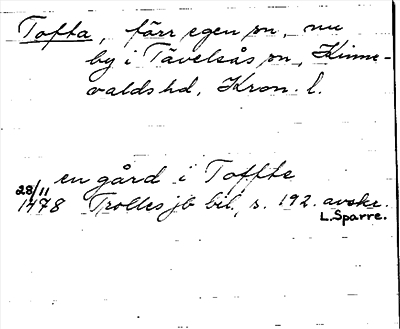 Tofta, förr egen sn, nu
by i Tävelsås sn, Kinne-
valds hd, Kron. l.
en gård i Toffte
28/11
1478 Trolles jb bil, s. 192. avskr.
L. Sparre.